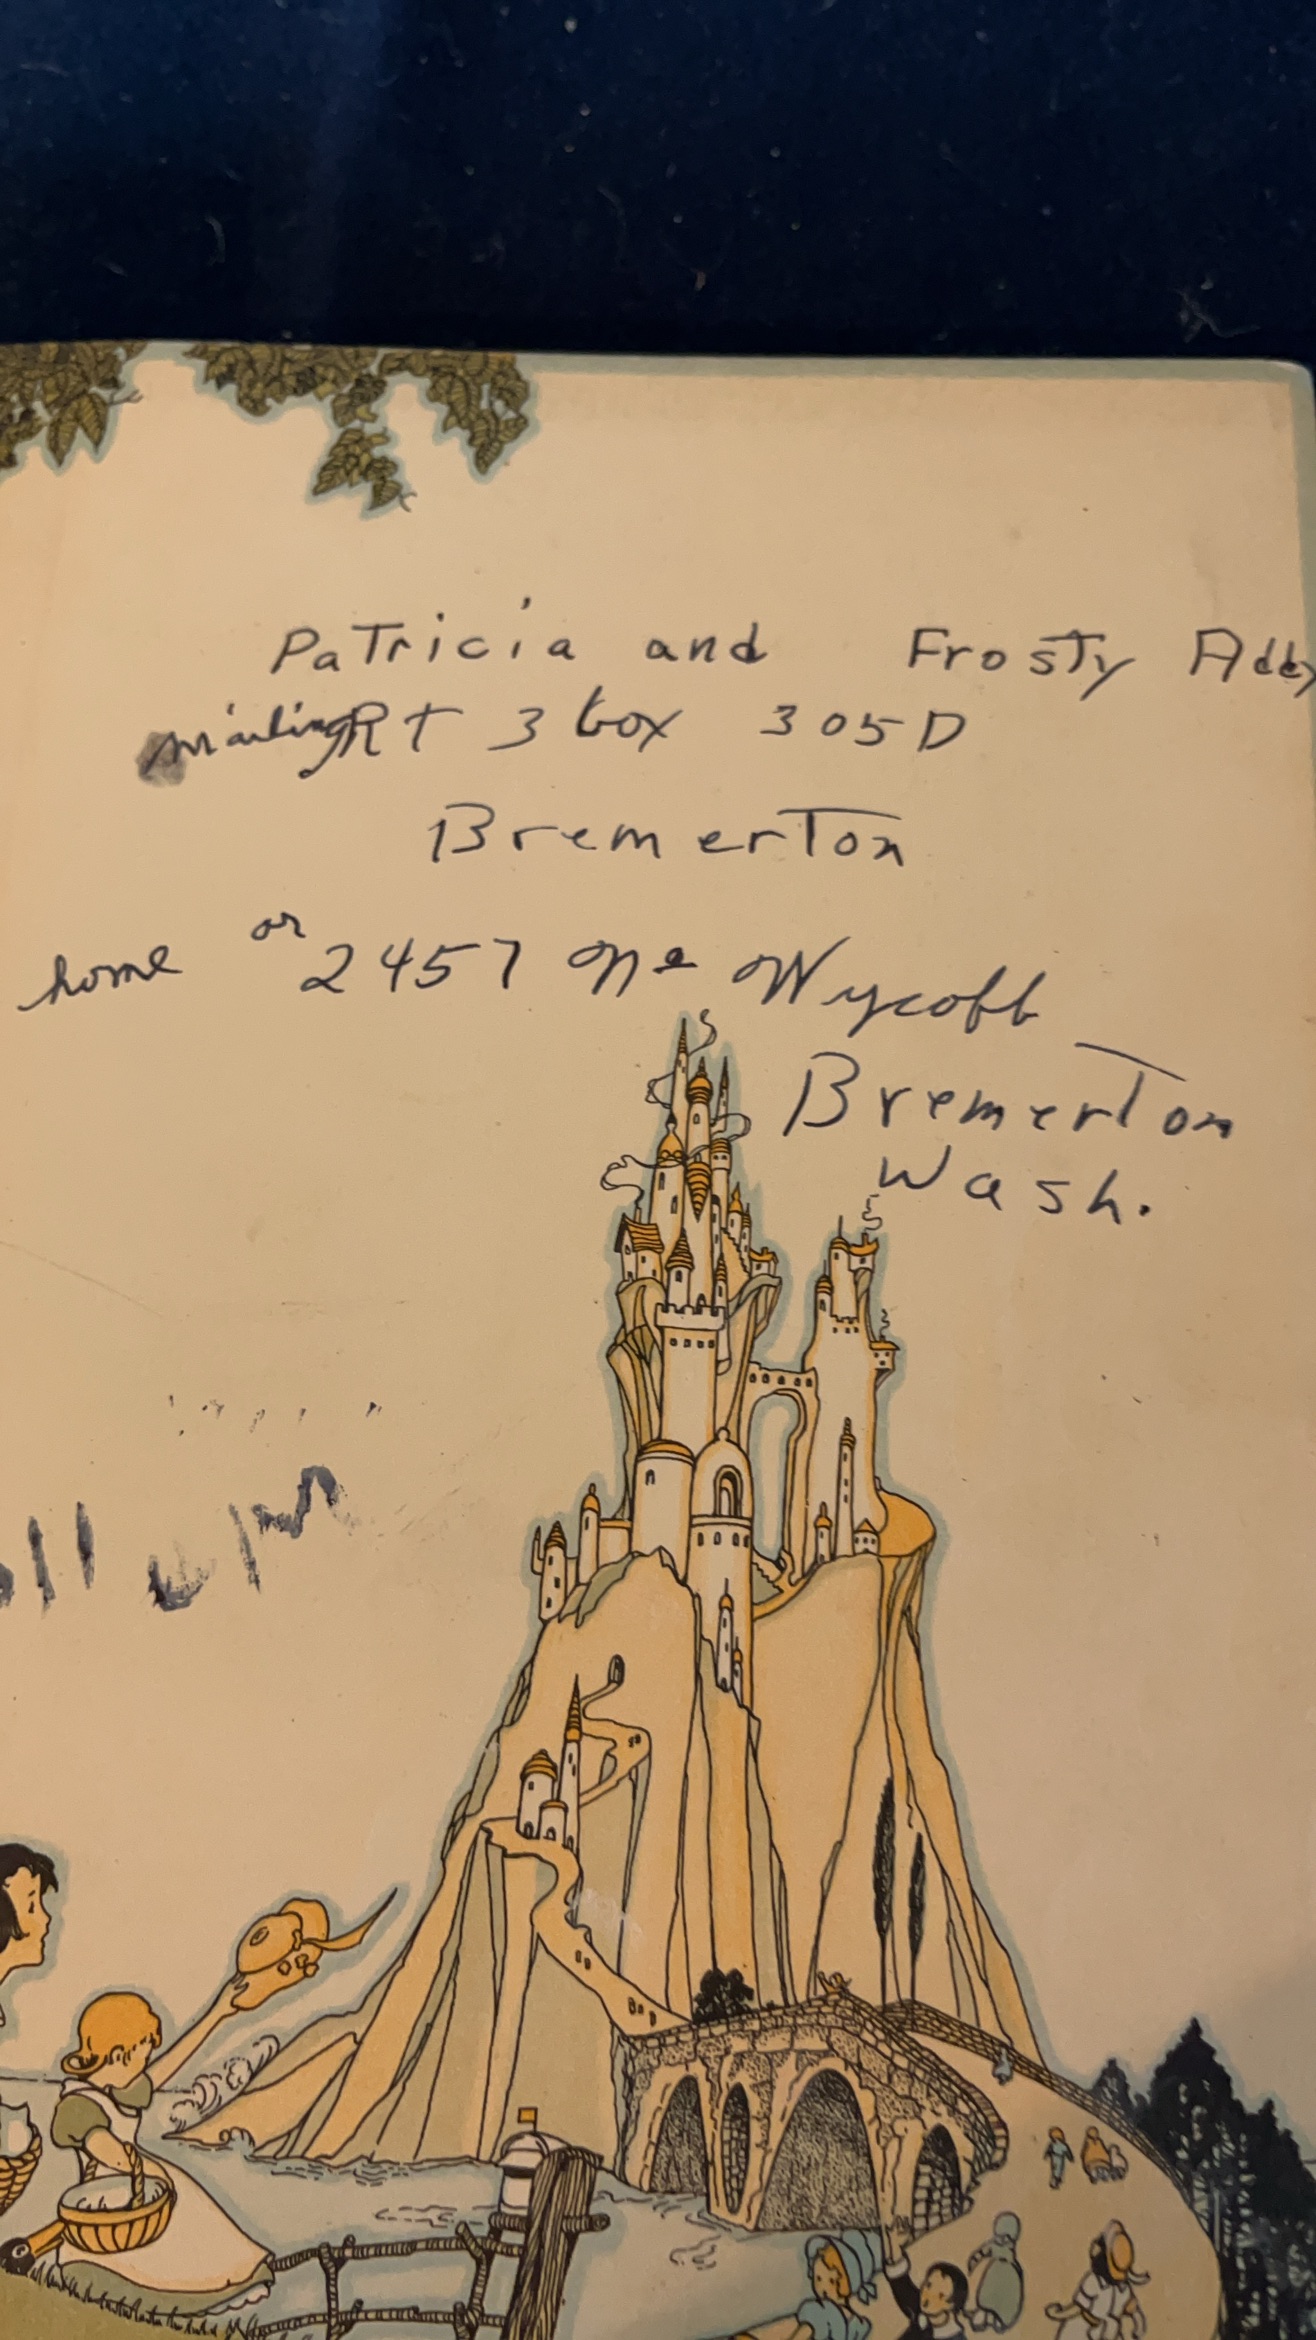 Patricia and Frosty
mailing Rt 3 box 305D
Bremerton
home or 2457 Ne Wycoff
Bremerton
Wash.